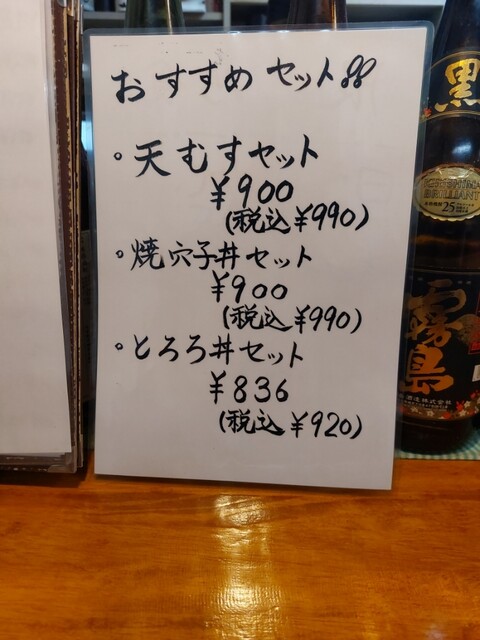 おすすめセット
・天むすセット
¥900
(税込¥990)
・焼穴子丼セット
¥900
(税込¥990)
・とろろ丼セット
¥836
(税込¥920)
黒
BRILLIANT
25
霧島